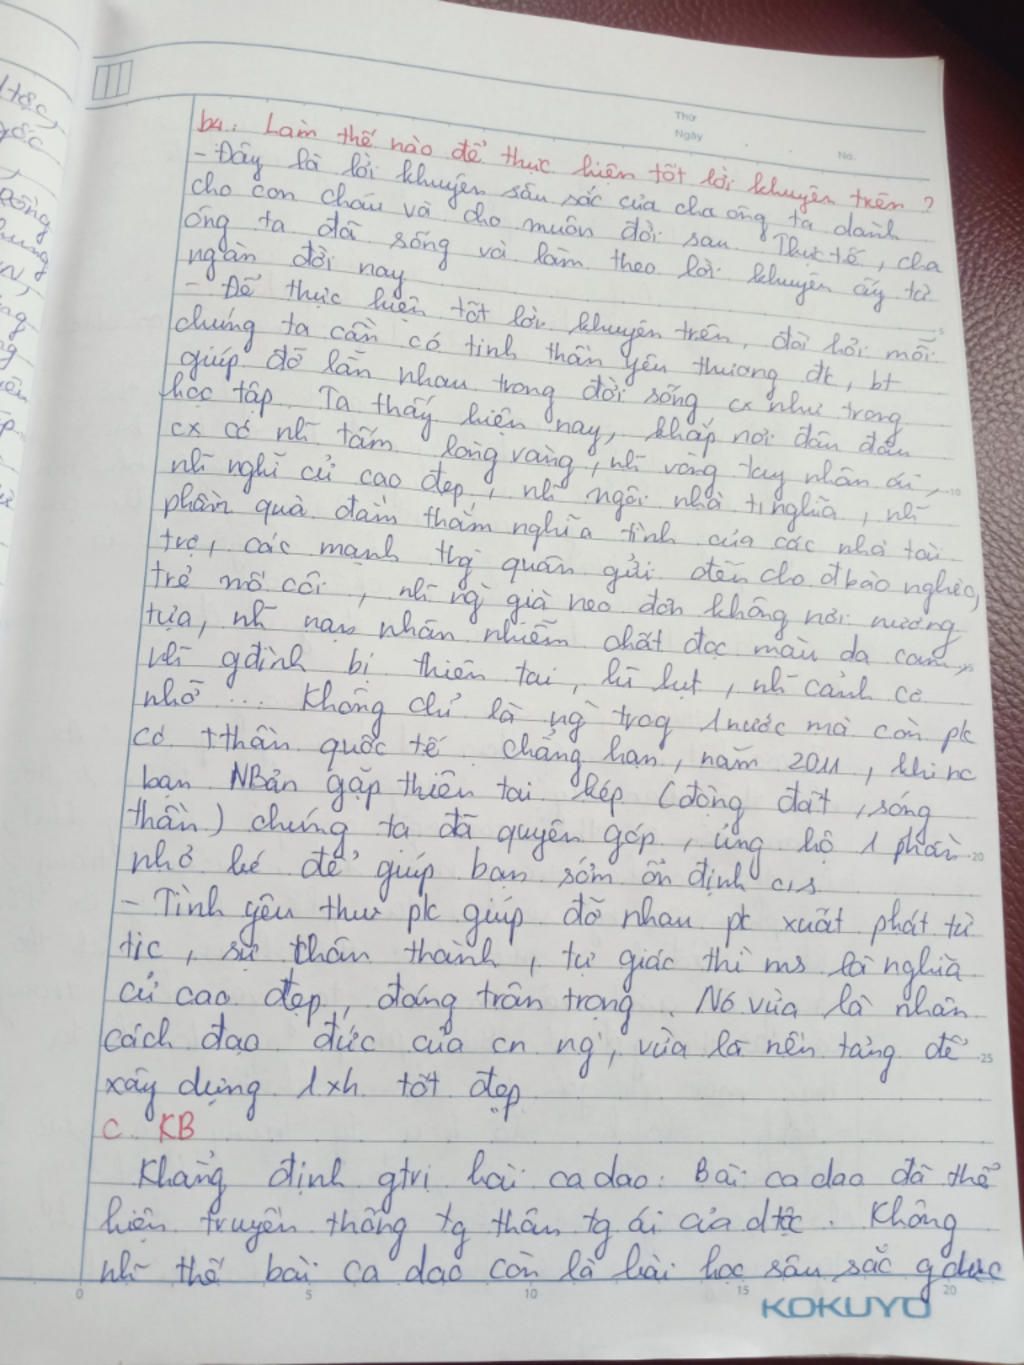 b4: Làm thế nào để thực hiện tốt lời khuyên trên?
- Đây là lời khuyên sâu sắc của cha ông ta dành
cho con cháu và cho muôn đời sau. Thực tế, cha
ông ta đã sống và làm theo lời khuyên ấy từ
ngàn đời nay
- Để thực hiện tốt lời khuyên trên, đòi hỏi mỗi
chúng ta cần có tinh thần yêu thương đk, bt
giúp đỡ lẫn nhau trong đời sống cx như trong
học tập. Ta thấy hiện nay, khắp nơi đâu đâu
cx có nh~ tấm lòng vàng, nh~ vòng tay nhân ái,
nh~ nghĩ cử cao đẹp, nh~ ngôi nhà t nghĩa, nh~
phần quà đằm thắm nghĩa tình của các nhà tài
trợ, các mạnh thg quân gửi đến cho đbào nghèo,
trẻ mồ côi, nh~ ng` già neo đơn không nơi nương
tựa, nh~ nạn nhân nhiễm chất độc màu da cam,
nh~ gđình bị thiên tai, lũ lụt, nh~ cảnh cơ
nhỡ... Không chỉ là ng` trog 1 nước mà còn pk
có tthần quốc tế. Chẳng hạn, năm 2011, khi nc
bạn NBản gặp thiên tai kép (động đất, sóng
thần) chúng ta đã quyên góp, ủng hộ 1 phần
nhỏ bé để giúp bạn sớm ổn định c/s
- Tình yêu thư pk giúp đỡ nhau pk xuất phát từ
t/c, sự chân thành, tự giác thì ms là nghĩa
cử cao đẹp, đáng trân trọng. Nó vừa là nhân
cách đạo đức của cn ng`, vừa là nền tảng để
xây dựng 1 xh tốt đẹp
C. KB
Khẳng định gtrị bài ca dao: Bài ca dao đã thể
hiện truyền thống tg thân tg ái của dtộc. Không
nh~ thế bài ca dao còn là bài học sâu sắc gdục
Thứ
Ngày
No.
5
10
15
20
25
0
5
10
15
20
KOKUYO